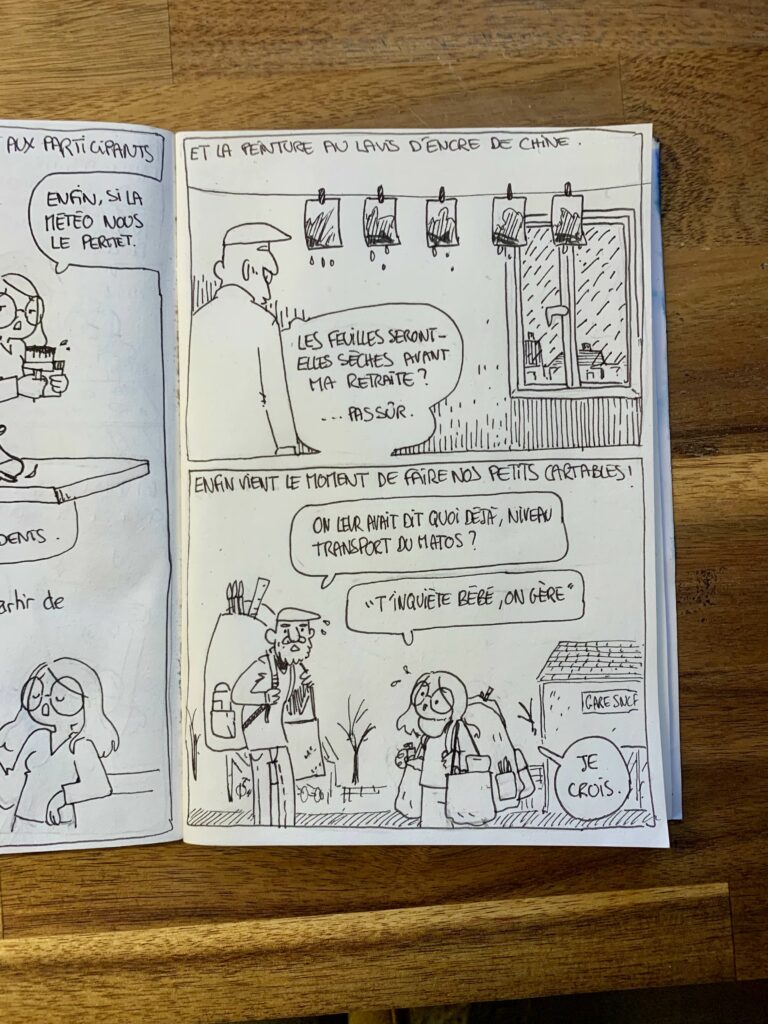 AUX PARTICIPANTS
ENFIN, SI LA
MÉTÉO NOUS
LE PERMET.
DENTS.
artir de
ET LA PEINTURE AU LAVIS D'ENCRE DE CHINE.
LES FEUILLES SERONT-
ELLES SÈCHES AVANT
MA RETRAITE ?
... PAS SÛR.
ENFIN VIENT LE MOMENT DE FAIRE NOS PETITS CARTABLES !
ON LEUR AVAIT DIT QUOI DÉJÀ, NIVEAU
TRANSPORT DU MATOS ?
"T'INQUIÈTE BÉBÉ, ON GÈRE"
GARE SNCF
JE
CROIS.